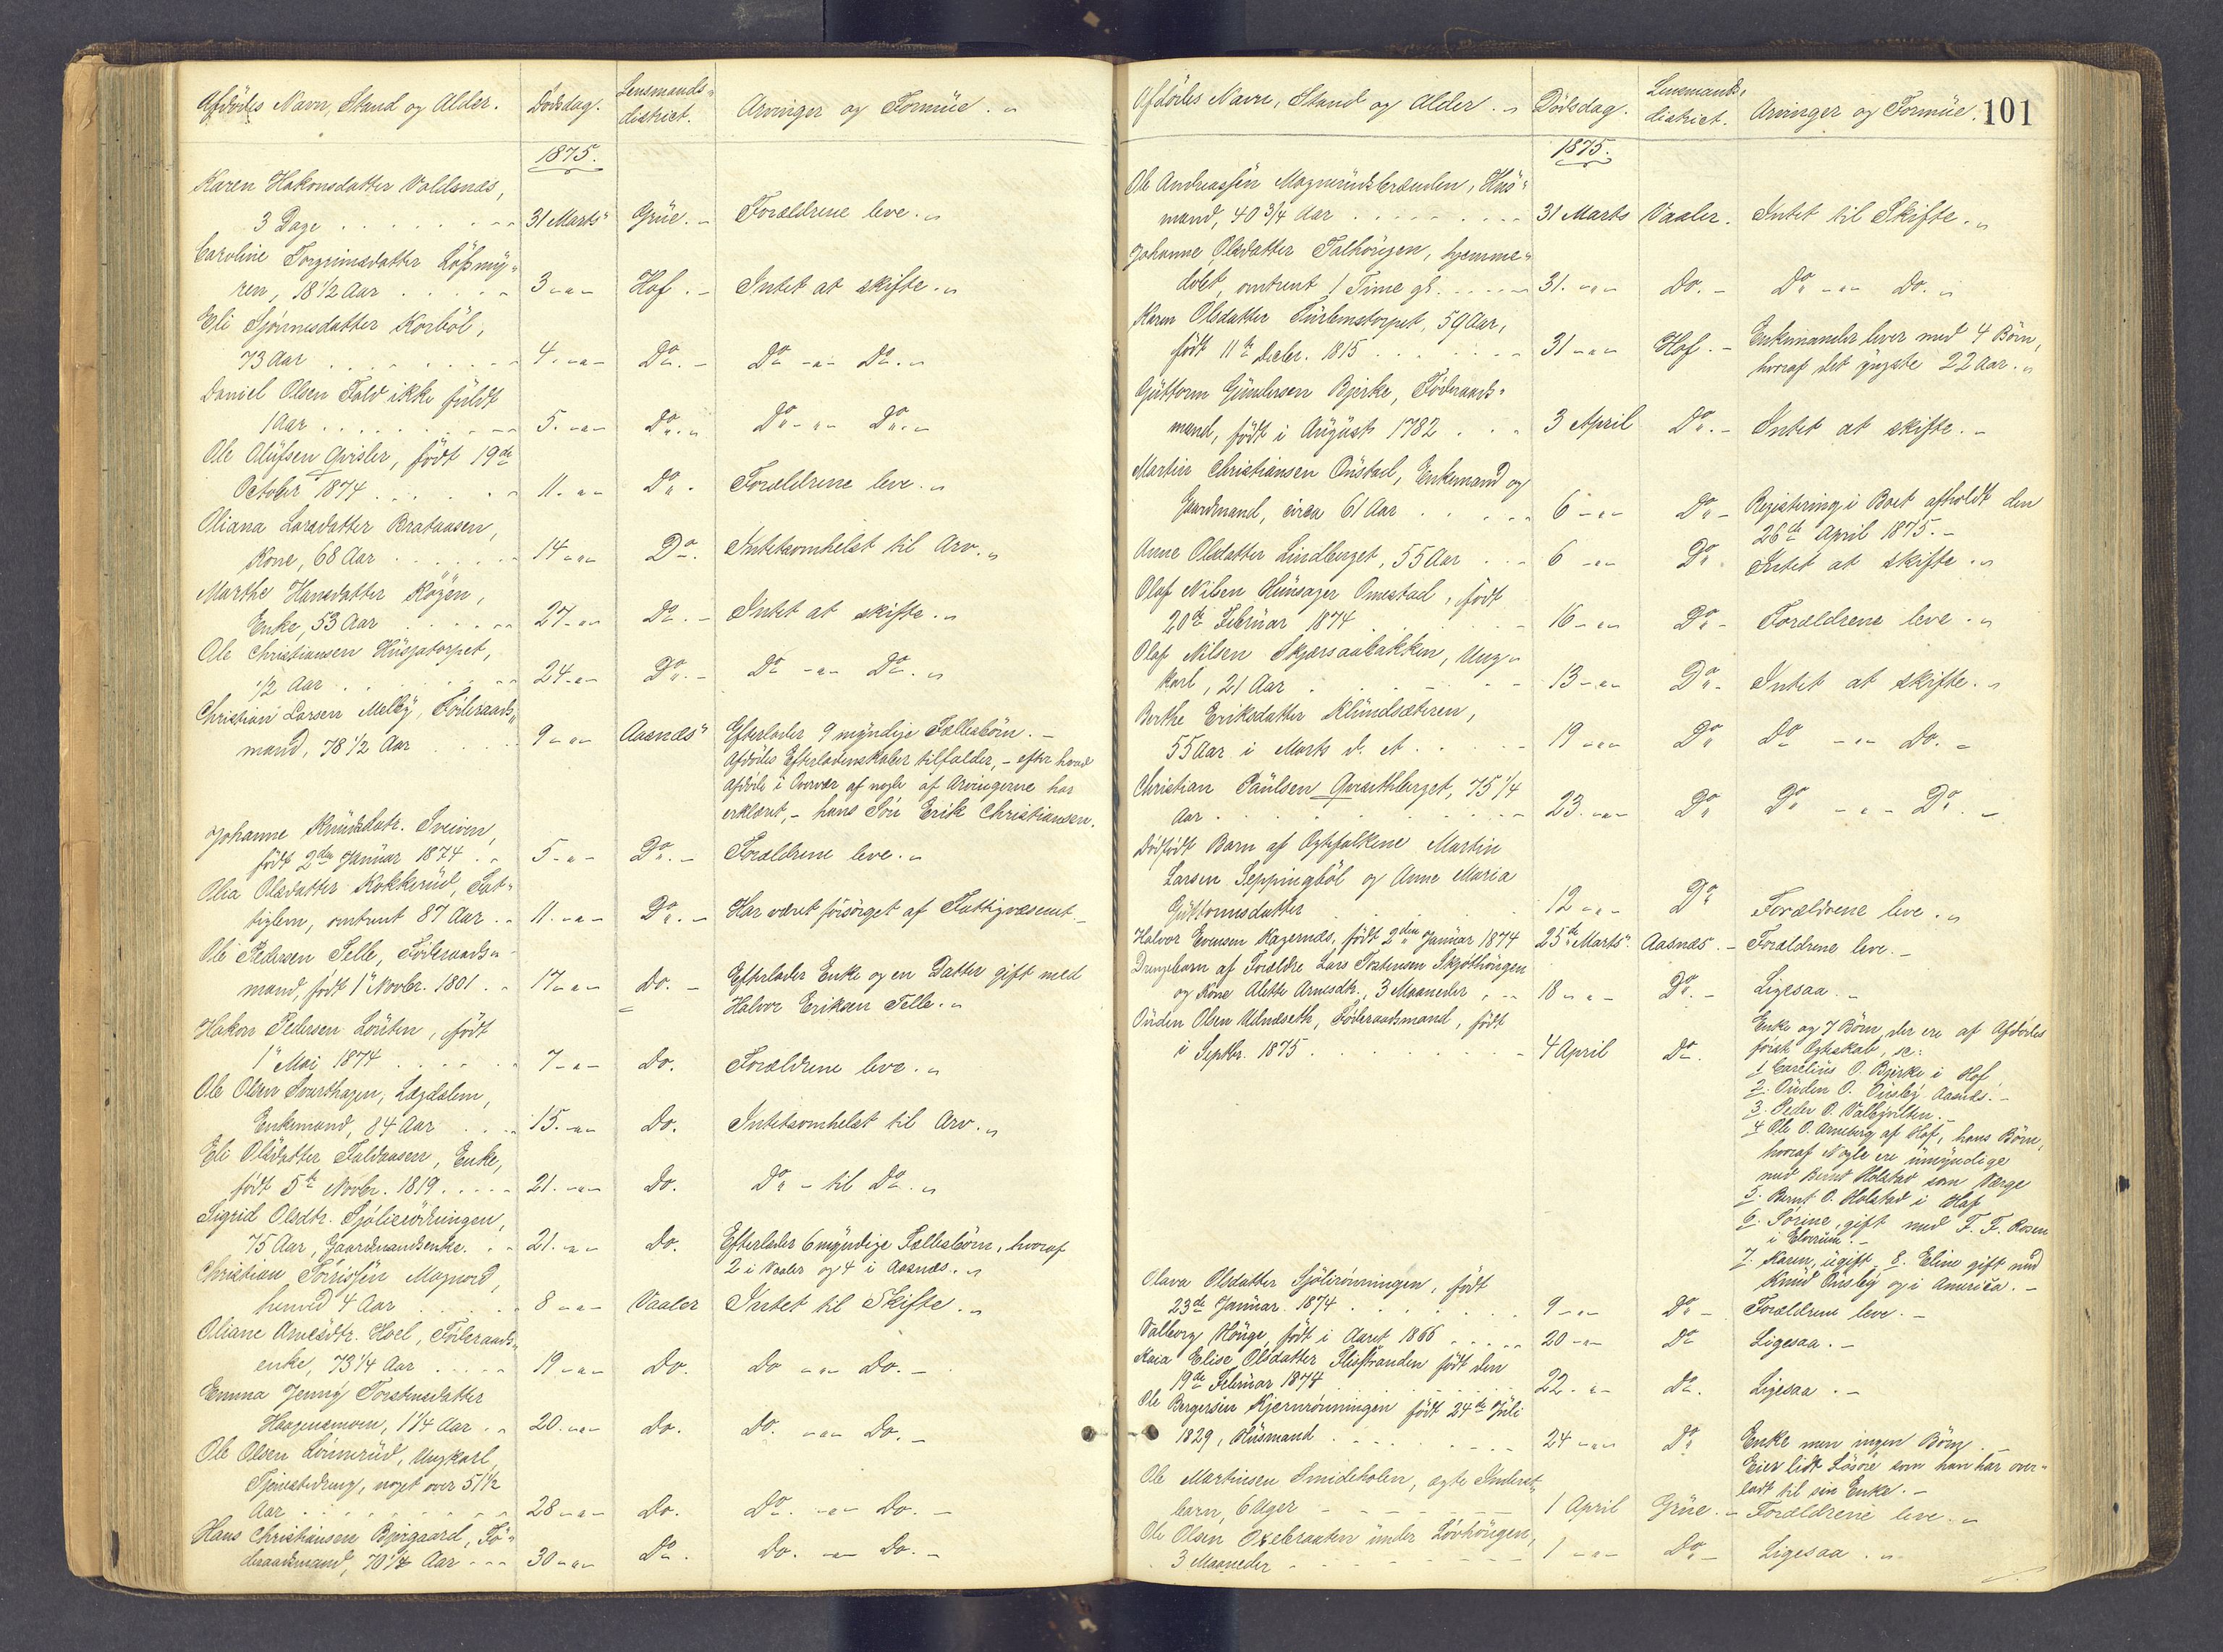 Afdödes Navn, Stand og Alder.
Dödsdag.
Lensmands-
district.
Arvinger og Formüe.
1875.
Karen Hakonsdatter Voldsnæs,
3 Dage 31 Marts Grüe. Forældrene leve.
Caroline Torgrimsdatter Löfsmÿ-
ren, 18 1/2 Aar 3 Hof. Intet at skifte.
Eli Sjönnesdatter Korböl,
73 Aar 4. Do. Do Do.
Daniel Olsen Fald ikke füldt
1 Aar 5. Do. Do Do.
Ole Olüfsen Qvisler, födt 19de
October 1874 11. Do. Forældrene leve.
Oliana Larsdatter Brataasen,
Kone, 68 Aar 14 Do. Intetsomhelst til Arv.
Marthe Hansdatter Kögen,
Enke, 53 Aar 27 Do. Intet at skifte.
Ole Christiansen Hüsjatorpet,
1/2 Aar 24 Do. Do Do.
Christian Larsen Melbÿ, Föderaads-
mand, 78 1/2 Aar 9 Aasnæs Efterlader 9 mÿndige Fællesbörn.
Afdödes Efterladenskaber tilfalder, - efter hvad
Afdöde i Overvær af nogle af Arvingerne har
erklæret, - hans Sön Erik Christiansen.
Johanne Knüdsdatr. Sveiven,
födt 2den Janüar 1874 5 Do. Forældrene leve.
Olia Olsdatter Kokkerüd, Fat-
tiglem, omtrent 87 Aar 11. Do. Har været forsörget af Fattigvæsenet
Ole Pedersen Telle, Föderaads-
mand, födt 1 Novbr. 1801 17 Do. Efterlader Enke og en Datter gift med
Halvor Eriksen Telle.
Hakon Pedersen Löuten, födt
1 Mai 1874 7 Do. Forældrene leve.
Ole Olsen Svarthagen, Lægdslem,
Enkemand, 84 Aar 15. Do. Intetsomhelst til Arv.
Eli Olsdatter Faldaasen, Enke,
födt 5te Novbr. 1819 21. Do. Do til Do.
Sigrid Olsdtr. Sjölirönningen,
75 Aar, Gaardmandsenke. 21. Do. Efterlader 6 mÿndige Fællesbörn, hvoraf
2 i Vaaler og 4 i Aasnæs.
Christian Torrissen Magnord,
henved 4 Aar 8 Vaaler Intet til Skifte.
Oliane Arnesdtr. Hoel, Föderaads-
enke, 73 1/4 Aar 19 Do. Do Do.
Emma Jenny Torstensdatter
Haagensmoen, 1 1/4 Aar 20. Do. Do. Do.
Ole Olsen Lönnerüd, Ungkarl,
Tjenestedreng, noget over 51 1/2
Aar 28 Do. Do. Do.
Hans Christiansen Bjørgaard, Fö-
deraadsmand, 70 1/4 Aar 30 Do. Do. Do.
Afdödes Navn, Stand og Alder.
Dödsdag.
Lensmands-
district.
Arvinger og Formüe.
101
1875.
Ole Andreassen Magnerüdsbraaten, Hüs-
mand, 40 3/4 Aar 31 Marts Vaaler. Intet til Skifte.
Johanne Olsdatter Talhöugen, hjemme-
döbt, omtrent 1 Time gl. 31. Do. Do Do.
Karen Olsdatter Türbenstorpet, 59 Aar,
födt 11te Decbr. 1815 31 Hof. Enkemanden lever med 4 Börn,
hvoraf det ÿngste 22 Aar.
Güttorm Gündersen Bjerke, Föderaads-
mand, födt i Aügüst 1782 3 April Do. Intet at skifte.
Martin Christiansen Önstad, Enkemand og
Gaardmand, circa 61 Aar 6 Do Registering i Boet afholdt den
26de April 1875.
Anne Olsdatter Lindberget, 55 Aar 6 Do. Intet at skifte.
Olaf Nilsen Hünsager Omestad, födt
20de Februar 1874 16 Do Forældrene leve.
Olaf Nilsen Skjærsaabakken, Ung-
karl, 21 Aar 13 Do. Intet at skifte.
Berthe Eriksdatter Klündsæteren,
55 Aar i Marts d. A. 19 Do Do Do.
Christian Paülsen Qvarthberget, 75 1/4
Aar 23. Do Do Do.
Dödfödt Barn af Ægtefolkene Martin
Larsen Seppingböl og Anne Maria
Güttormsdatter 12 Do Forældrene leve.
Halvor Evensen Kagernæs, födt 2den Janüar 1874 25de Marts Aasnæs. Forældrene leve.
Drengebarn af Forældre Lars Tostensen Skjöthöugen
og Kone Alette Arnesdtr., 3 Maaneder 18 Do. Ligesaa.
Oüden Olsen Udnæseth, Föderaadsmand, födt
i Septbr. 1875 4 April Do. Enke og 7 Börn, der ere af Afdödes
förste Ægteskab, sc:
1 Carelius O. Bjerke i Hof
2. Oüden O. Önsbÿ Aasnæs.
3. Peder O. Valbÿvilten.
4 Ole O. Arneberg af Hof, hans Börn,
hvoraf Nogle ere ümÿndige
med Bernt Holstad som Værge
5. Bernt O. Holstad i Hof
6. Sörine, gift med F. F. Rosen
i Elverüm.
7. Karen, ügift. 8. Eline gift med
Knüd Önsbÿ og i America.
Olava Olsdatter Sjölirönningen, födt
23de Janüar 1874 9 Do Forældrene leve.
Valborg Höuge, födt i Aaret 1866 20 Do Ligesaa.
Kaia Elise Olsdatter Flisstranden födt den
19de Februar 1874 22. Do. Ligesaa.
Ole Bergersen Kjernrönningen födt 24de Jüli
1829, Hüsmand 24 Do Enke men ingen Börn.
Eier lidt Lösöre som han har over-
ladt til sin Enke.
Ole Martinsen Smideholen, ægte Inderst-
barn, 6 Uger 1 April Grüe. Forældrene leve.
Ole Olsen Oxebraaten ünder Lövhöugen,
3 Maaneder 1 Do Ligesaa.